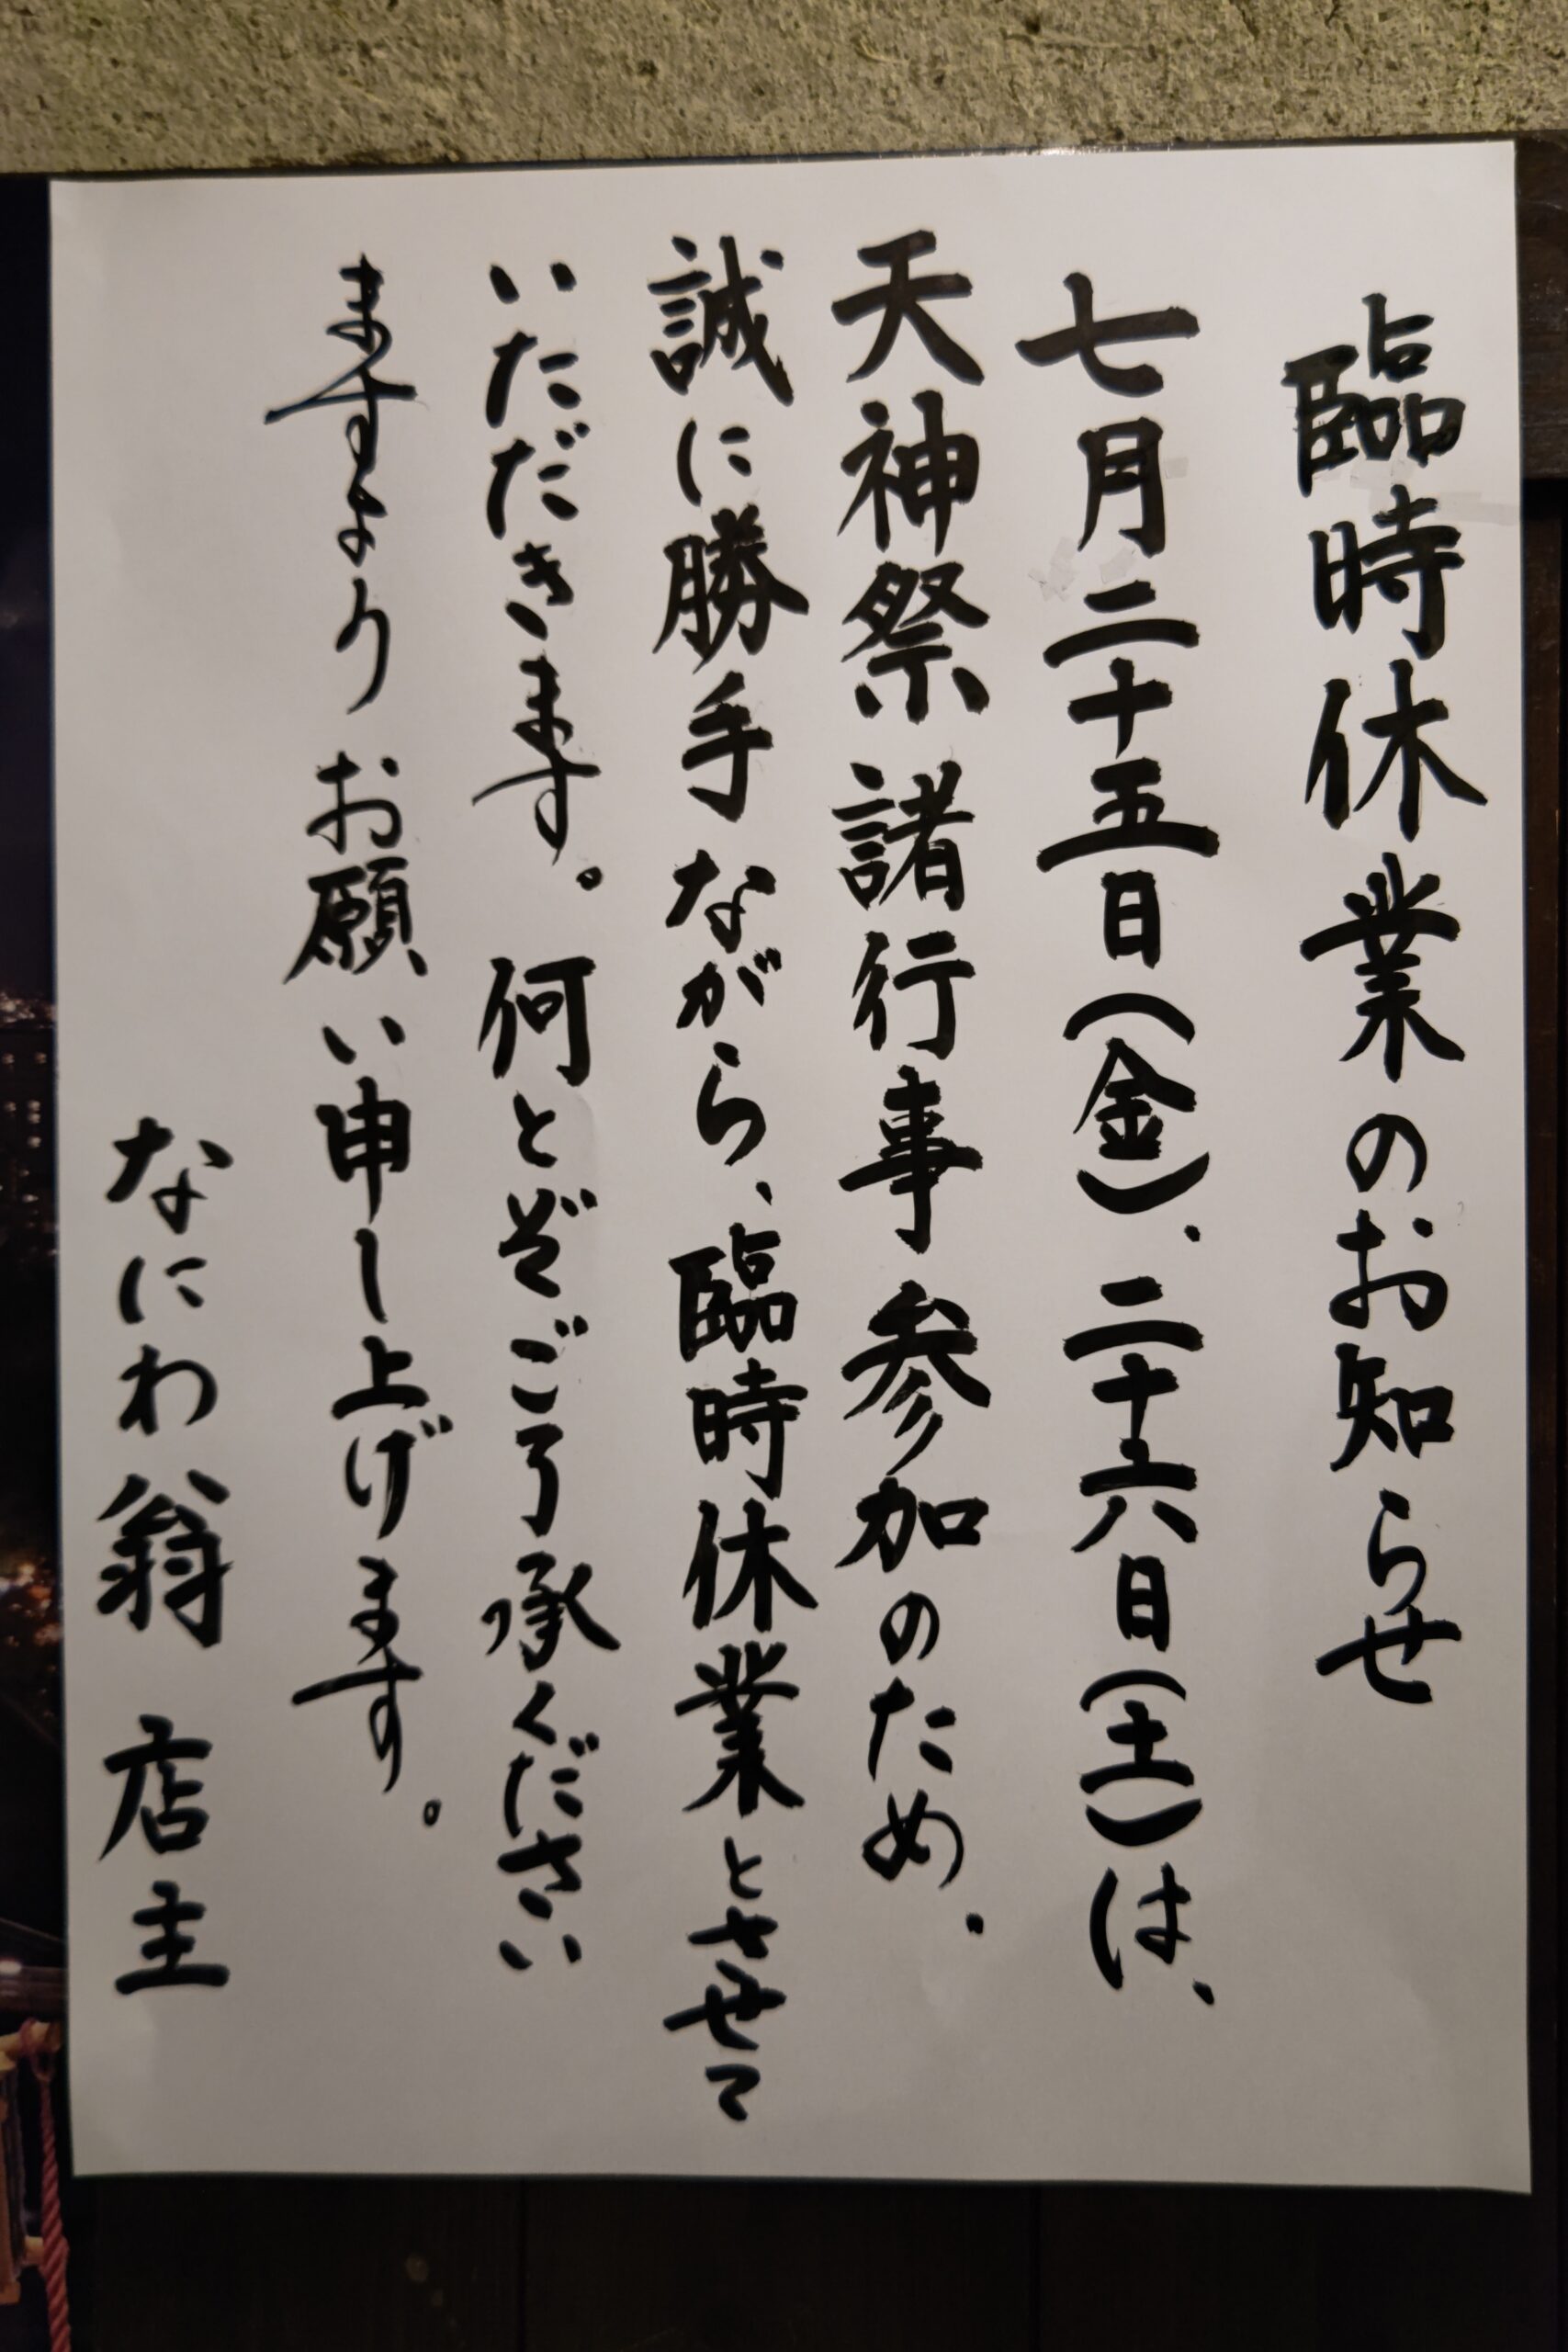 臨時休業のお知らせ
七月二十五日(金)、二十六日(土)は、
天神祭諸行事参加のため、
誠に勝手ながら、臨時休業とさせて
いただきます。何とぞご了承ください
ますよりお願い申し上げます。
なにわ翁 店主